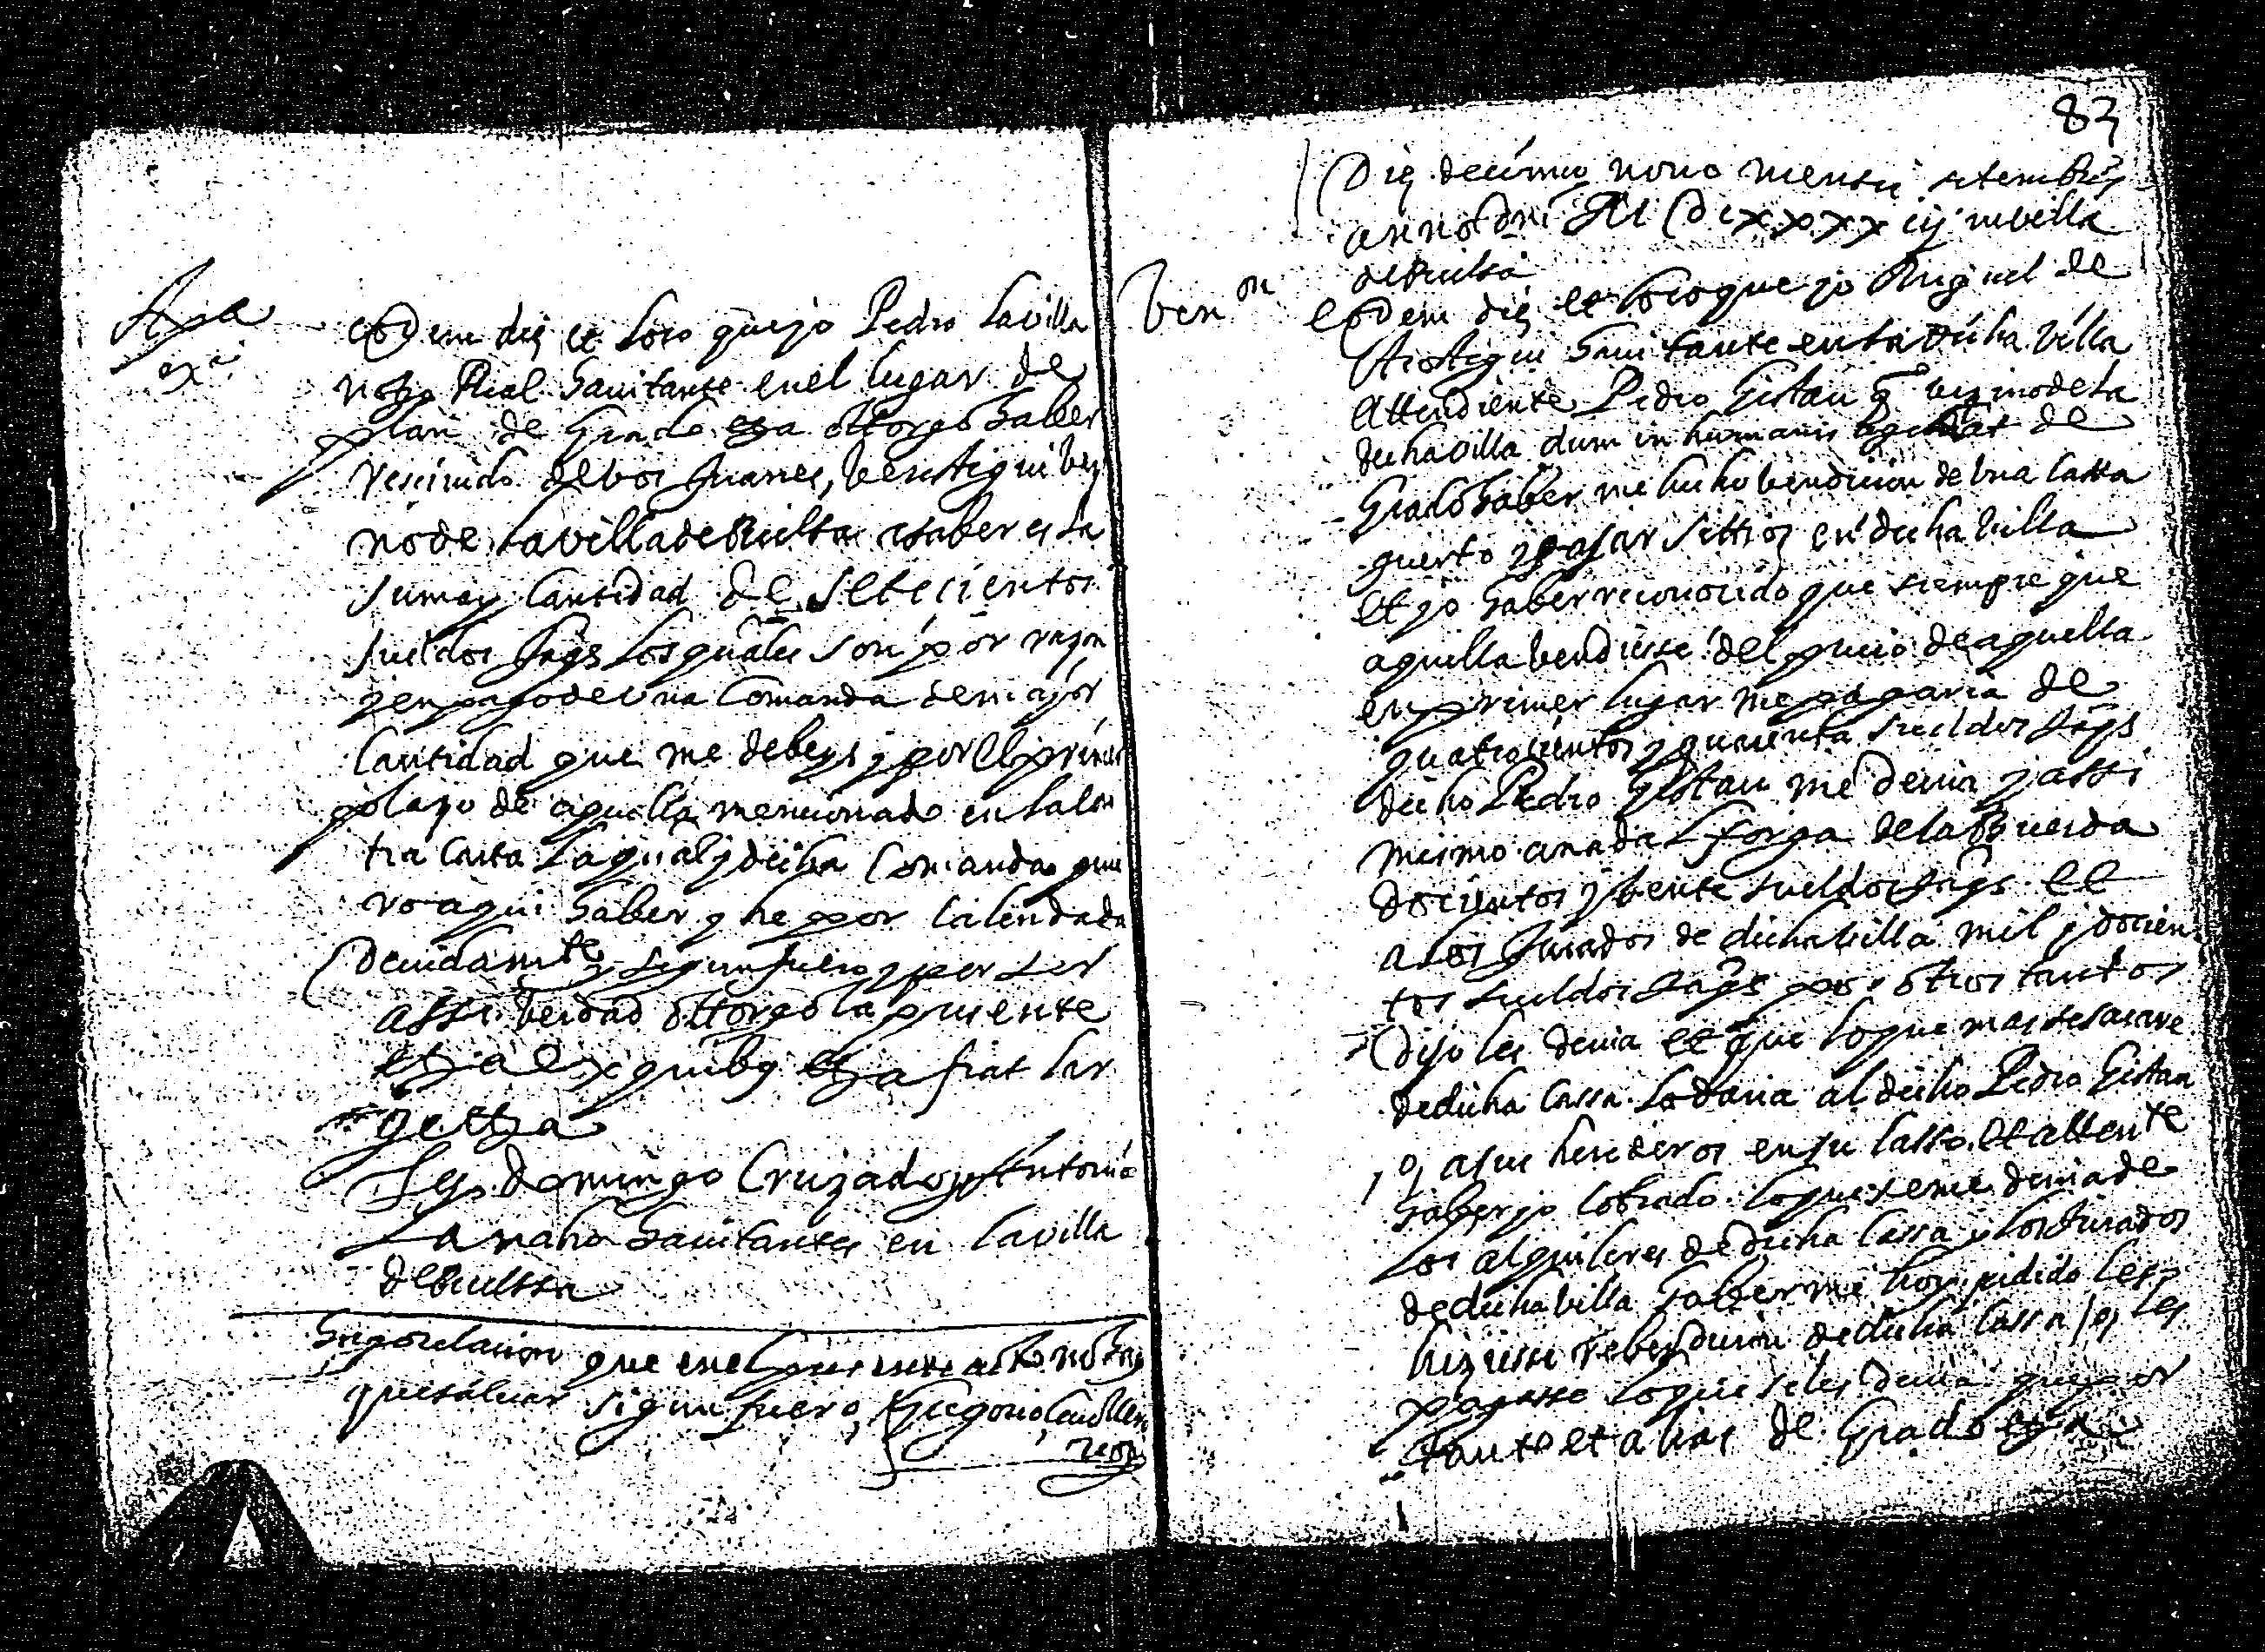 Apca
exa
Eodem die et loco que yo Pedro lavilla
noto Real havitante en el lugar de
plan de Grado etza ottorgo haber
rescivido de vos Juanes, bezi
no de la villa de Bielsa a saber es la
suma y cantidad de setecientos
sueldos Jaqs los quales son por razon
y en pago de una Comanda de major
cantidad que me debeys y por el primer
plazo de aquella mencionado en la con
tra carta la qual y dicha Comanda quie
ro aqui haber y he por calendada
devidamte y segun fuero y por ser
assi berdad ottorgo la presente
etza ex quibus etza fiat lar
ge etza
Ts Domingo Cruzado y Antonio
havitantes en la villa
de Bielssa
que en el presente acto no hay
que salvar sigun fuero, Gregorio
not
83
Die decimo nono mensis setembris
anno Dni M DCxxxx iij in villa
de Bielsa
Ven on
Eodem die et loco que yo Miguel de
havitante en la dicha villa
Attendiente Pedro Gistau qo vezino de la
dicha villa dum in humanis agebat de
Grado haber me hecho bendicion de una cassa
guerto y pajar sittios en dicha billa
et yo haber reconocido que siempre que
aquella bendiesse del precio de aquella
en primer lugar me pagaria de
quatrocientos y quarenta sueldos Jaqs
dicho Pedro Gistau me devia y assi
mismo a nada forga de la Buerda
docientos y bente sueldos Jaqs et
a los Jurados de dicha villa mil y docien
tos sueldos Jaqs por otros tantos
dijo les devia et que lo que mas se sacare
de dicha cassa lo daria al dicho Pedro Gistau
, o, a sus herederos en su casso et attente
haber yo cobrado lo que se me devia de
los alquileres de dicha cassa y los Jurados
de dicha billa haberme hoy pedido les
hiziesse rebendicion de dicha cassa, o, les
pagasse lo que se les devia que por
tanto et alias de Grado etza